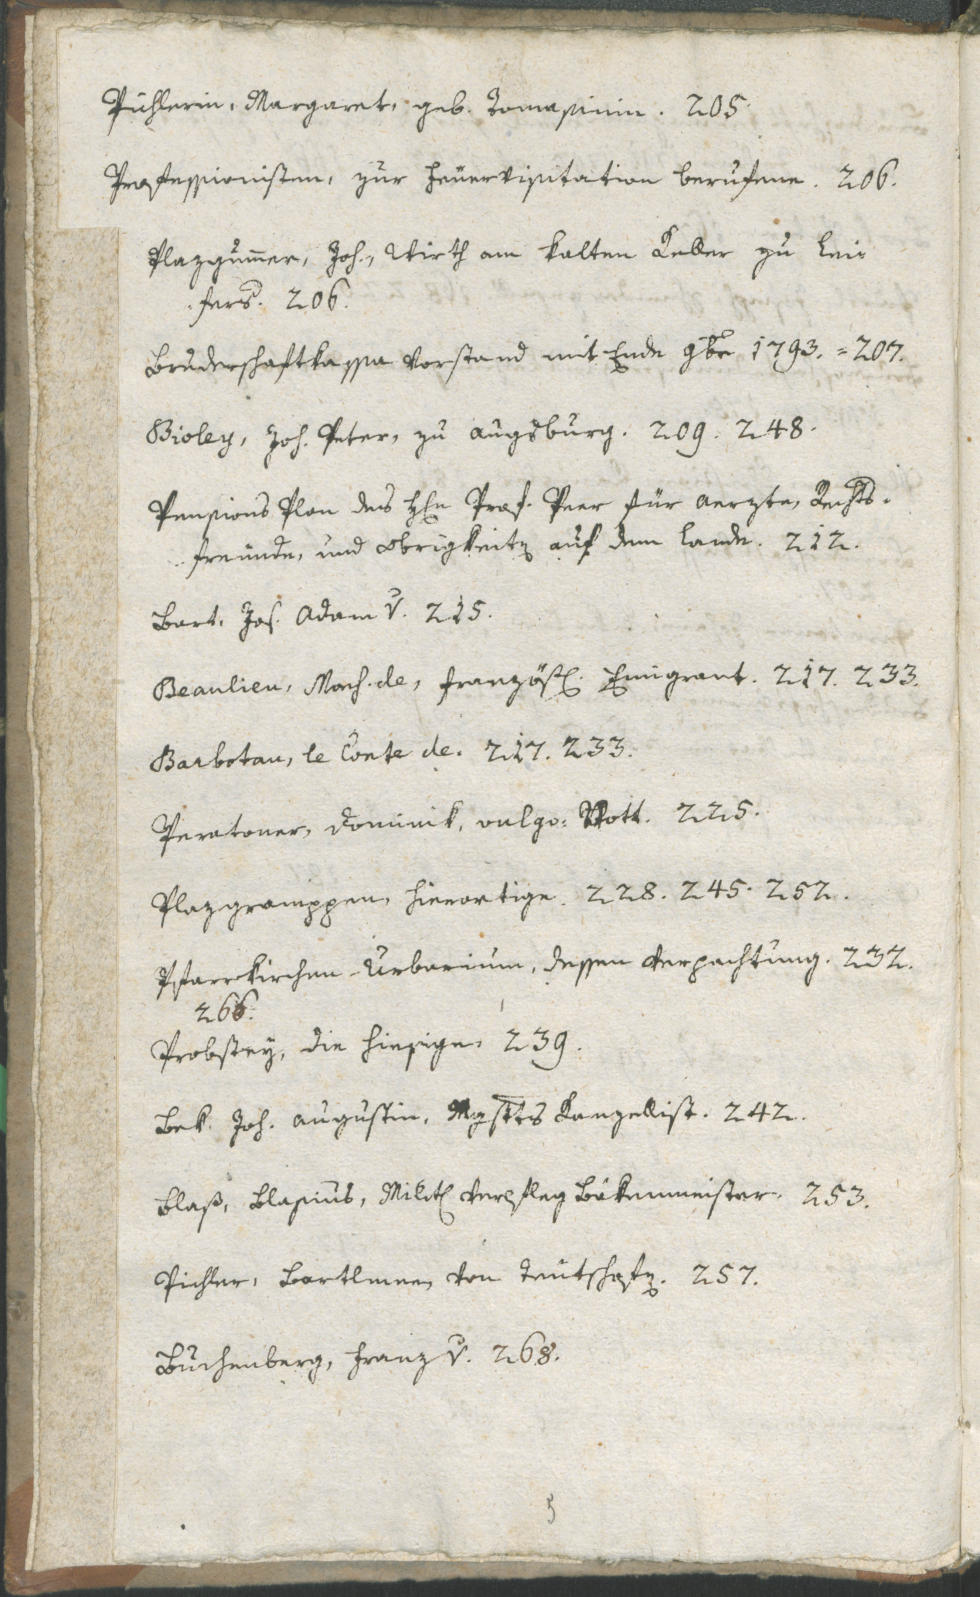 Pichlerin, Margaret, geb. Tomasinin. 205.
Professionisten, zur Feuervisitation berufene. 206.
Plazgum̄er, Joh., Wirth am kalten Keller zu Lei-
fers. 206.
Bruderschaftkassa Vorstand mit Ende 9br 1793. = 207.
Bioley, Joh. Peter, zu Augsburg. 209. 248.
Pensions Plan des Hrn Prof. Peer für Aerzte, Rechts-
freunde, und Obrigkeiten auf dem Lande. 212.
Bart, Jos. Adam v. 215.
Beaulieu, Mach. de, französ. Emigrant. 217. 233.
Barbotau, le Conte de. 217. 233.
Peratoner, Dominik, vulgo: Pott. 225.
Plazgramppen, hierortige. 228. 245. 252.
Pfarrkirchen-Urbarium, dessen Verpachtung. 232.
266.
Probstey, die hiesige. 239.
Bek Joh. Augustin, Mgstts Kanzellist. 242.
Blaß, Blasius, Milit. Verpfleg Bäkenmeister. 253.
Pichler, Bartlmee, von Teutschofen. 257.
Buchenberg, Franz v. 268.
5